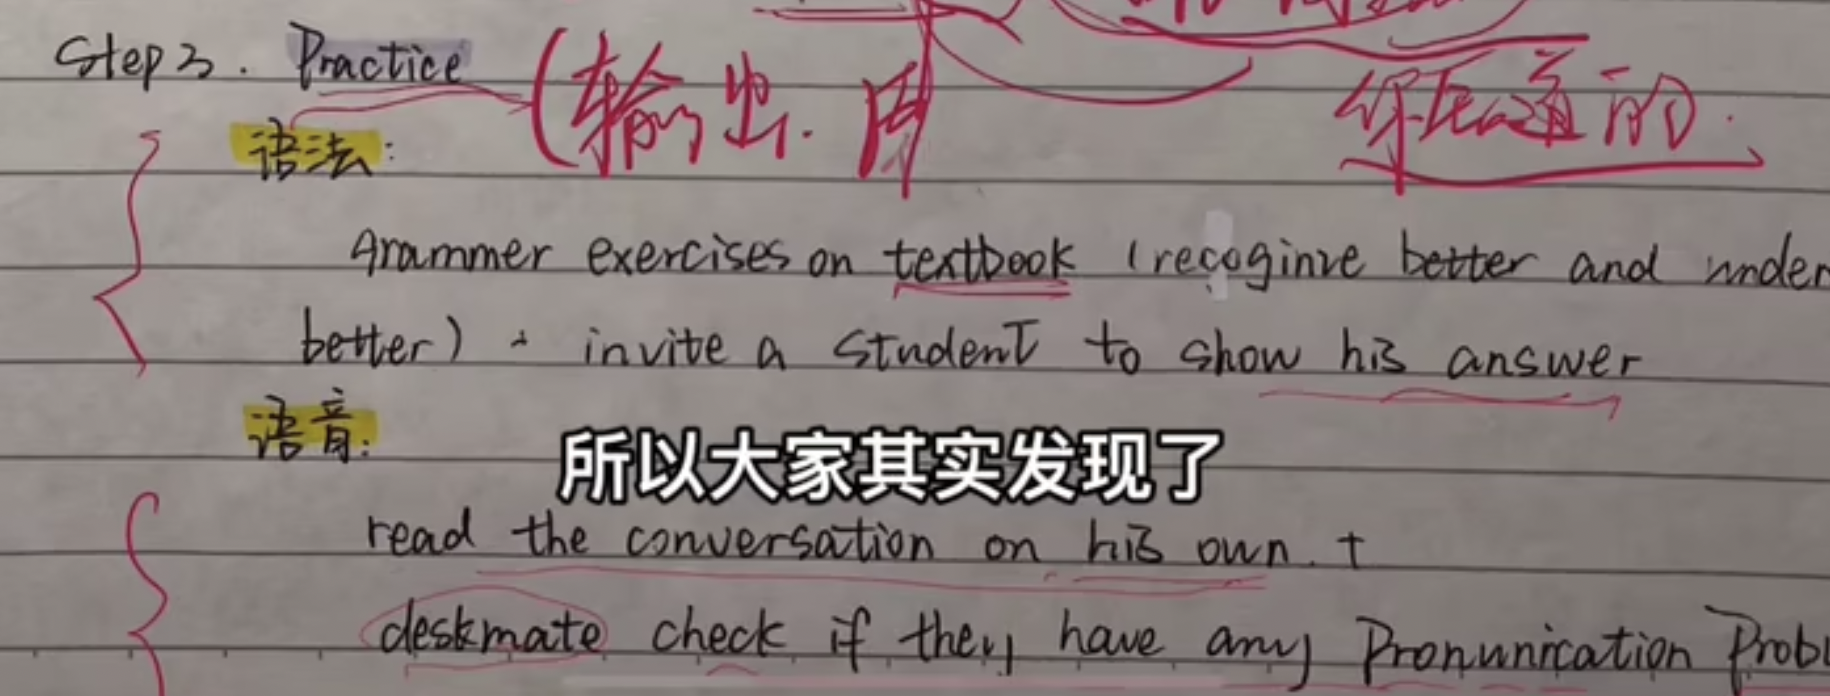 Step 3. Practice (输出.用
你沟通的.
语法:
grammer exercises on textbook (recoginze better and under
better) + invite a student to show his answer
语音:
所以大家其实发现了
read the conversation on his own. +
deskmate check if they have any Pronunication Probl